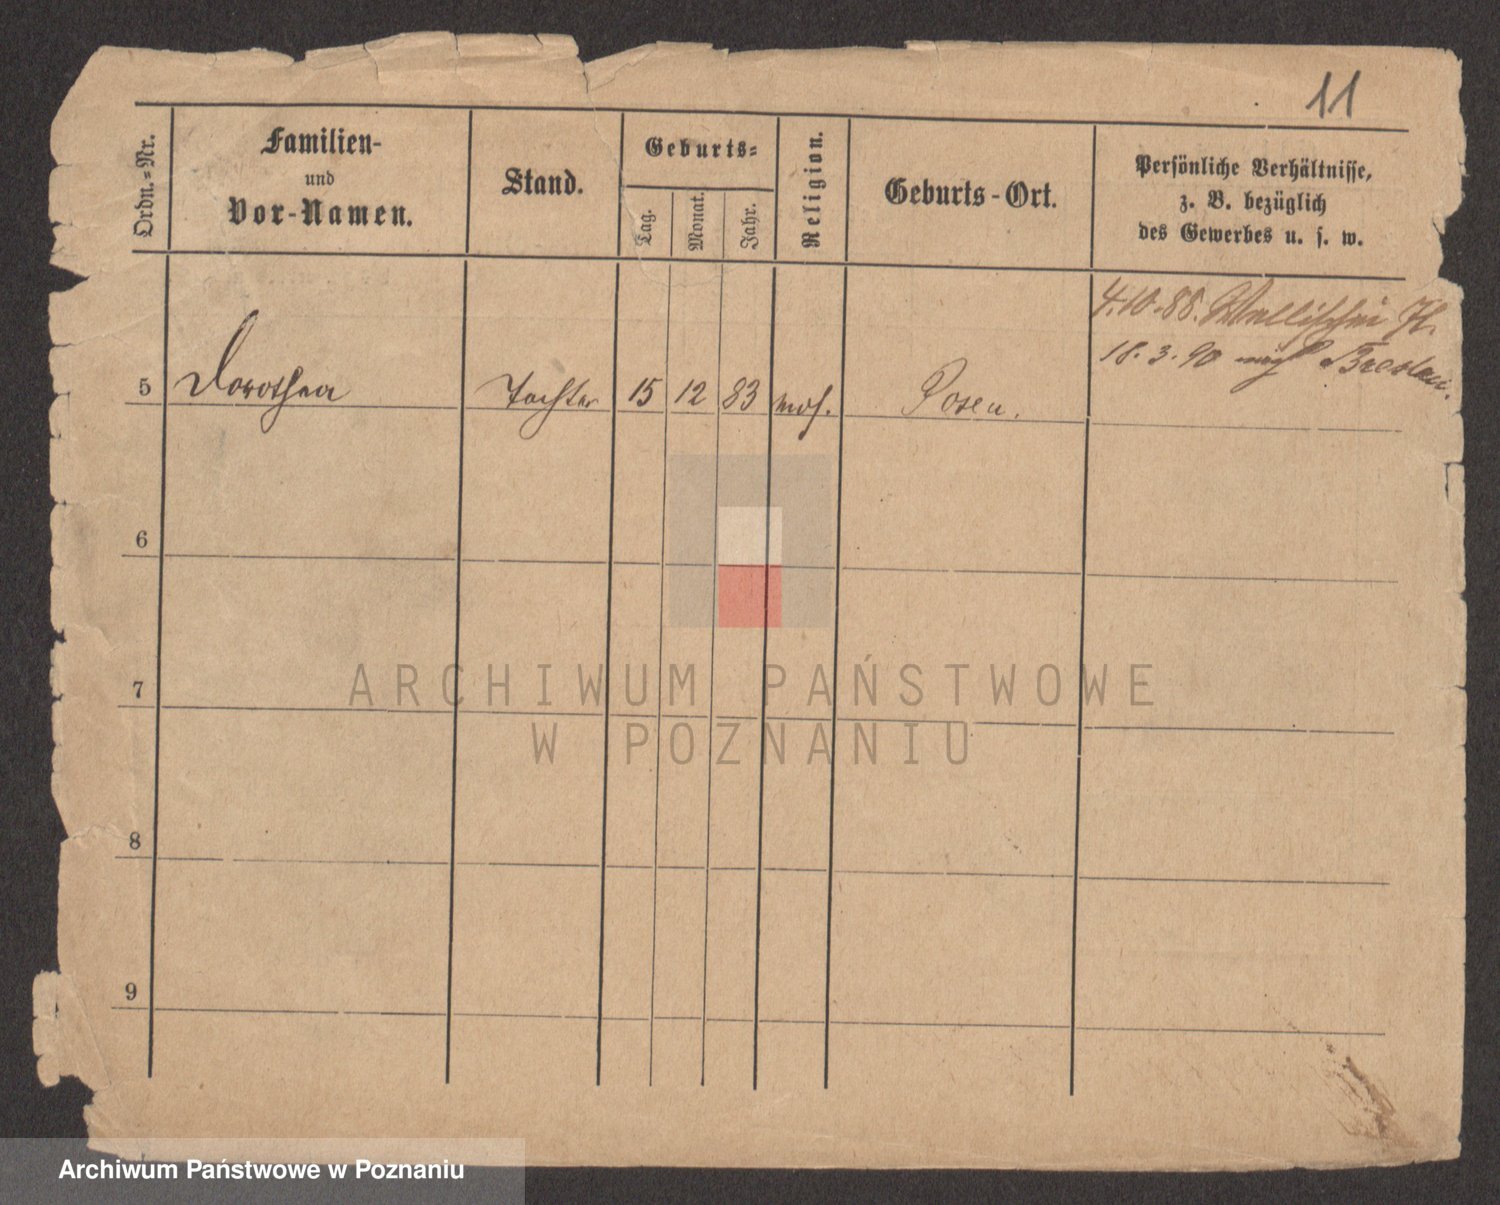 11
Ordn.=Nr.
Familien-
und
Vor-Namen.
Stand.
Geburts=
Tag.
Monat.
Jahr.
Religion.
Geburts-Ort.
Persönliche Verhältnisse,
z. B. bezüglich
des Gewerbes u. s. w.
4.10.88. Wallischei
18.3.90 nach Breslau.
5 Dorothea Tochter 15 12 83 mos. Posen.
6
7
8
9
ARCHIWUM PAŃSTWOWE
W POZNANIU
Archiwum Państwowe w Poznaniu